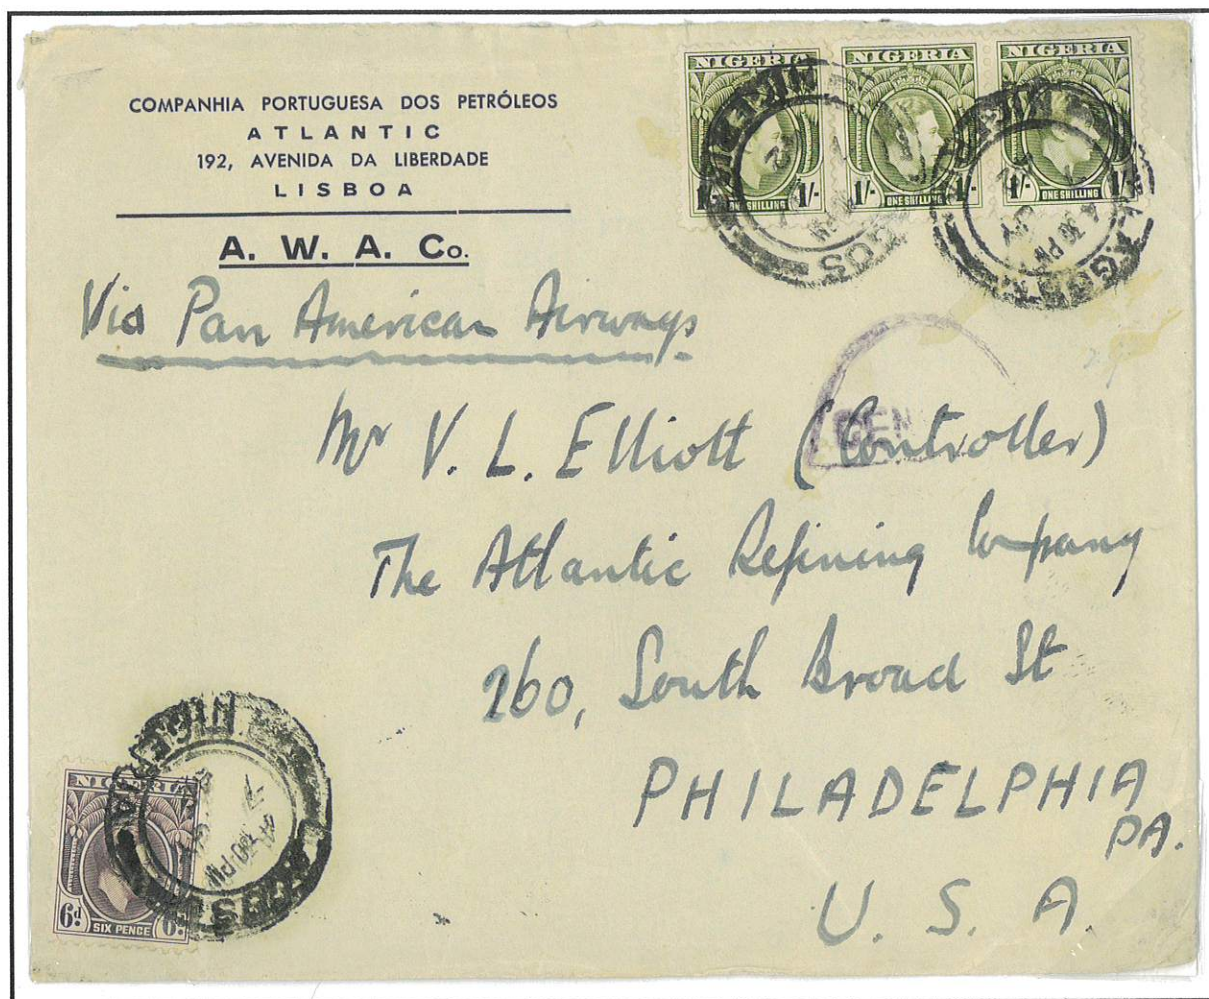 COMPANHIA PORTUGUESA DOS PETRÓLEOS
ATLANTIC
192, AVENIDA DA LIBERDADE
LISBOA
A. W. A. Co.
NIGERIA
1/- ONE SHILLING 1/-
NIGERIA
1/- ONE SHILLING 1/-
NIGERIA
1/- ONE SHILLING 1/-
NIGERIA
LAGOS
4.30 PM
Via Pan American Airways
Mr V. L. Elliott (Controller)
The Atlantic Refining Company
260, South Broad St
PHILADELPHIA
PA.
U. S. A.
NIGERIA
6d SIX PENCE
NIGERIA
4.30 PM